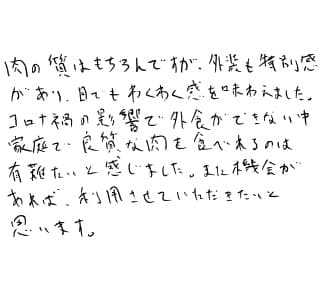 肉の質はもちろんですが、外装も特別感
があり、目でもわくわく感を味わえました。
コロナ禍の影響で外食ができない中
家庭で良質な肉を食べれるのは
有難たいと感じました。また機会が
あれば、利用させていただきたいと
思います。